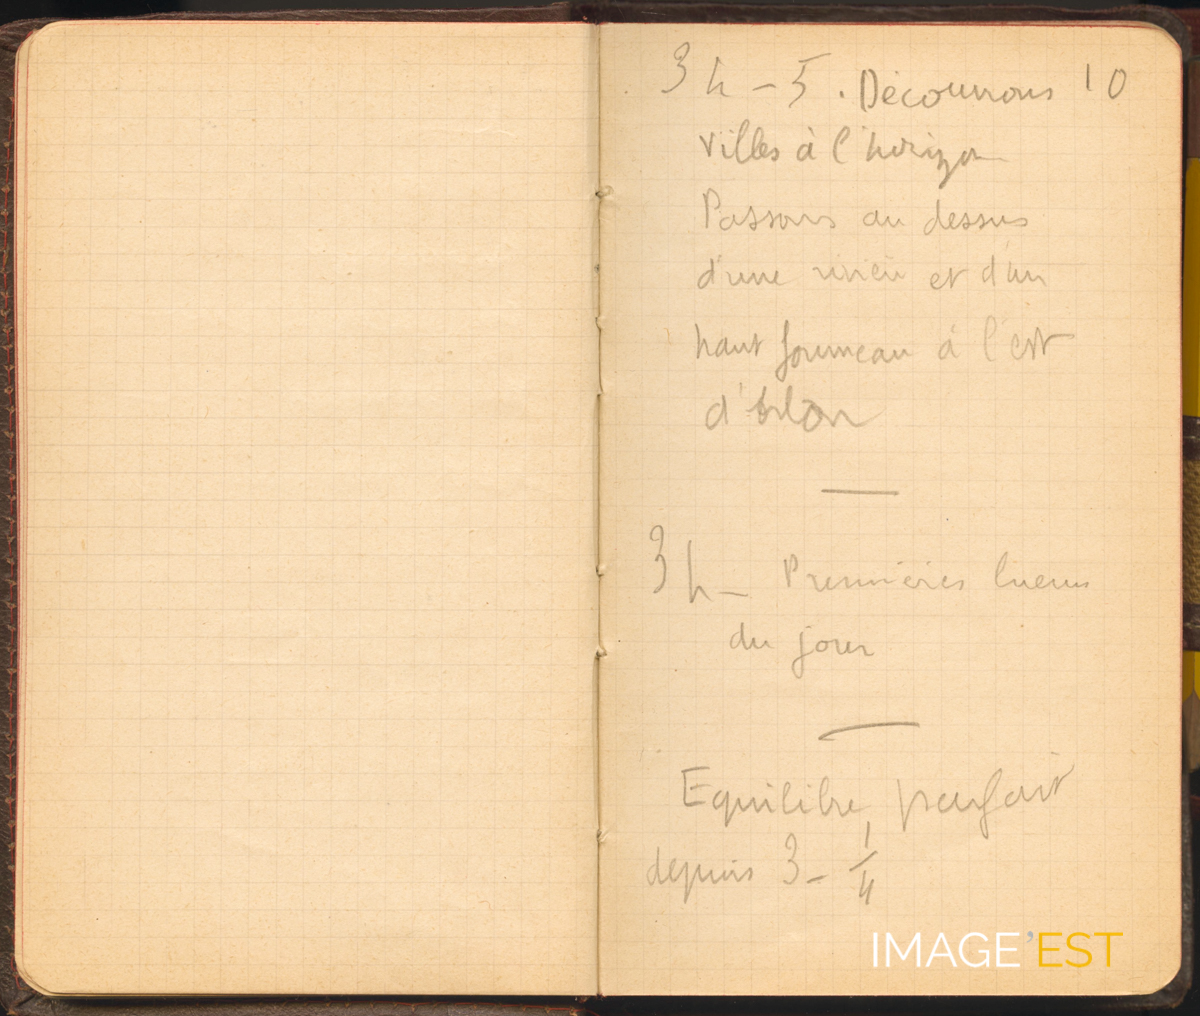 3 h - 5 . Découvrons 10
villes à l'horizon
Passons au dessus
d'une rivière et d'un
haut fourneau à l'est
d'Arlon
—
3 h - Premières lueurs
du jour
—
Equilibre parfait
depuis 3 - 1/4
IMAGE'EST